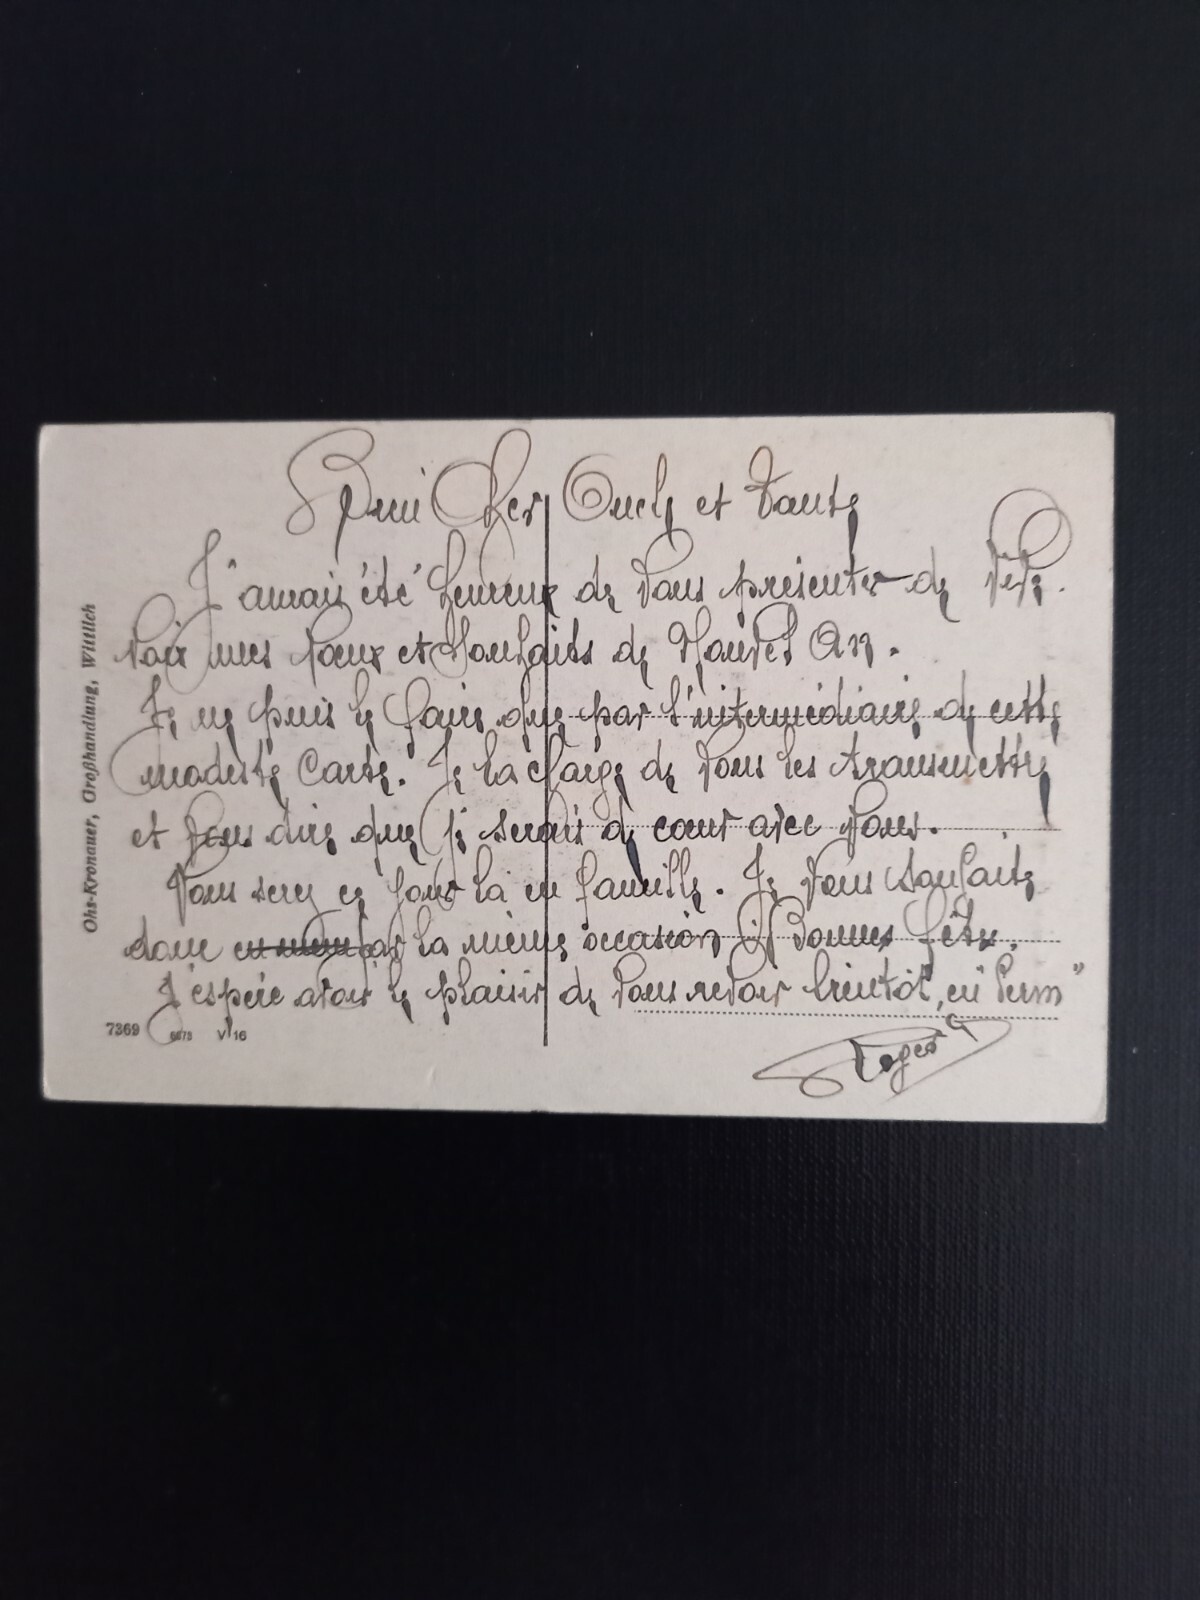 Cher Oncle et Tante
J'aurais été heureux de Vous présenter de Vive
Voix mes Vœux et Souhaits de Nouvel An.
Je ne puis le faire que par l'intermédiaire de cette
modeste Carte. Je la charge de Vous les transmettre
et Vous dire que je serais de cœur avec Vous.
Vous serez ce jour là en famille. Je Vous Souhaite
donc par la même occasion Bonnes fêtes.
J'espère avoir le plaisir de Vous revoir bientôt, en "Perm"
Roger
Ohs-Kronauer, Großhandlung, Wittlich
7369 V 16